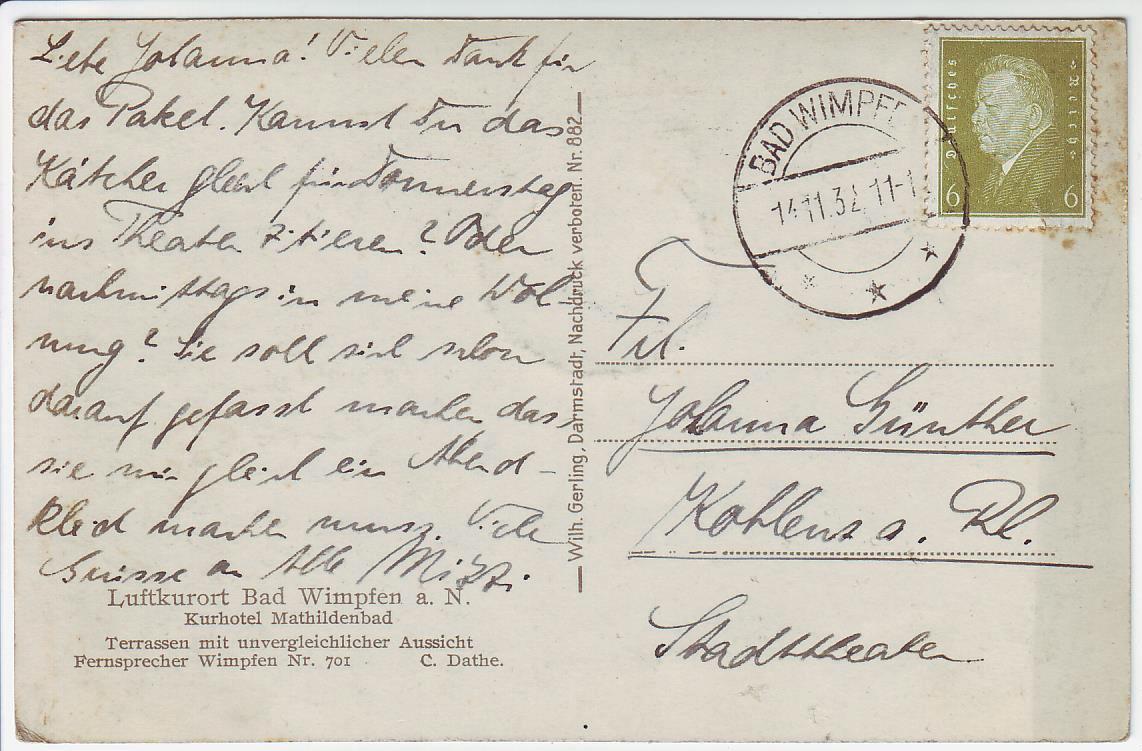 Liebe Johanna! Vielen Dank für
das Paket. Kannst Du das
Kätchen gleich für Donnerstag
ins Theater zitieren? Oder
nachmittags in meine Woh-
nung? Sie soll sich schon
darauf gefasst machen dass
sie mir gleich ein Abend-
kleid machen muss. Viele
Grüsse an Alle Mizzi.
Luftkurort Bad Wimpfen a. N.
Kurhotel Mathildenbad
Terrassen mit unvergleichlicher Aussicht
Fernsprecher Wimpfen Nr. 701 C. Dathe.
Wilh. Gerling, Darmstadt, Nachdruck verboten. Nr. 882
BAD WIMPFE
14.11.32. 11-1
Deutsches Reich
6 6
Frl.
Johanna Günther
Koblenz a. Rh.
Stadttheater